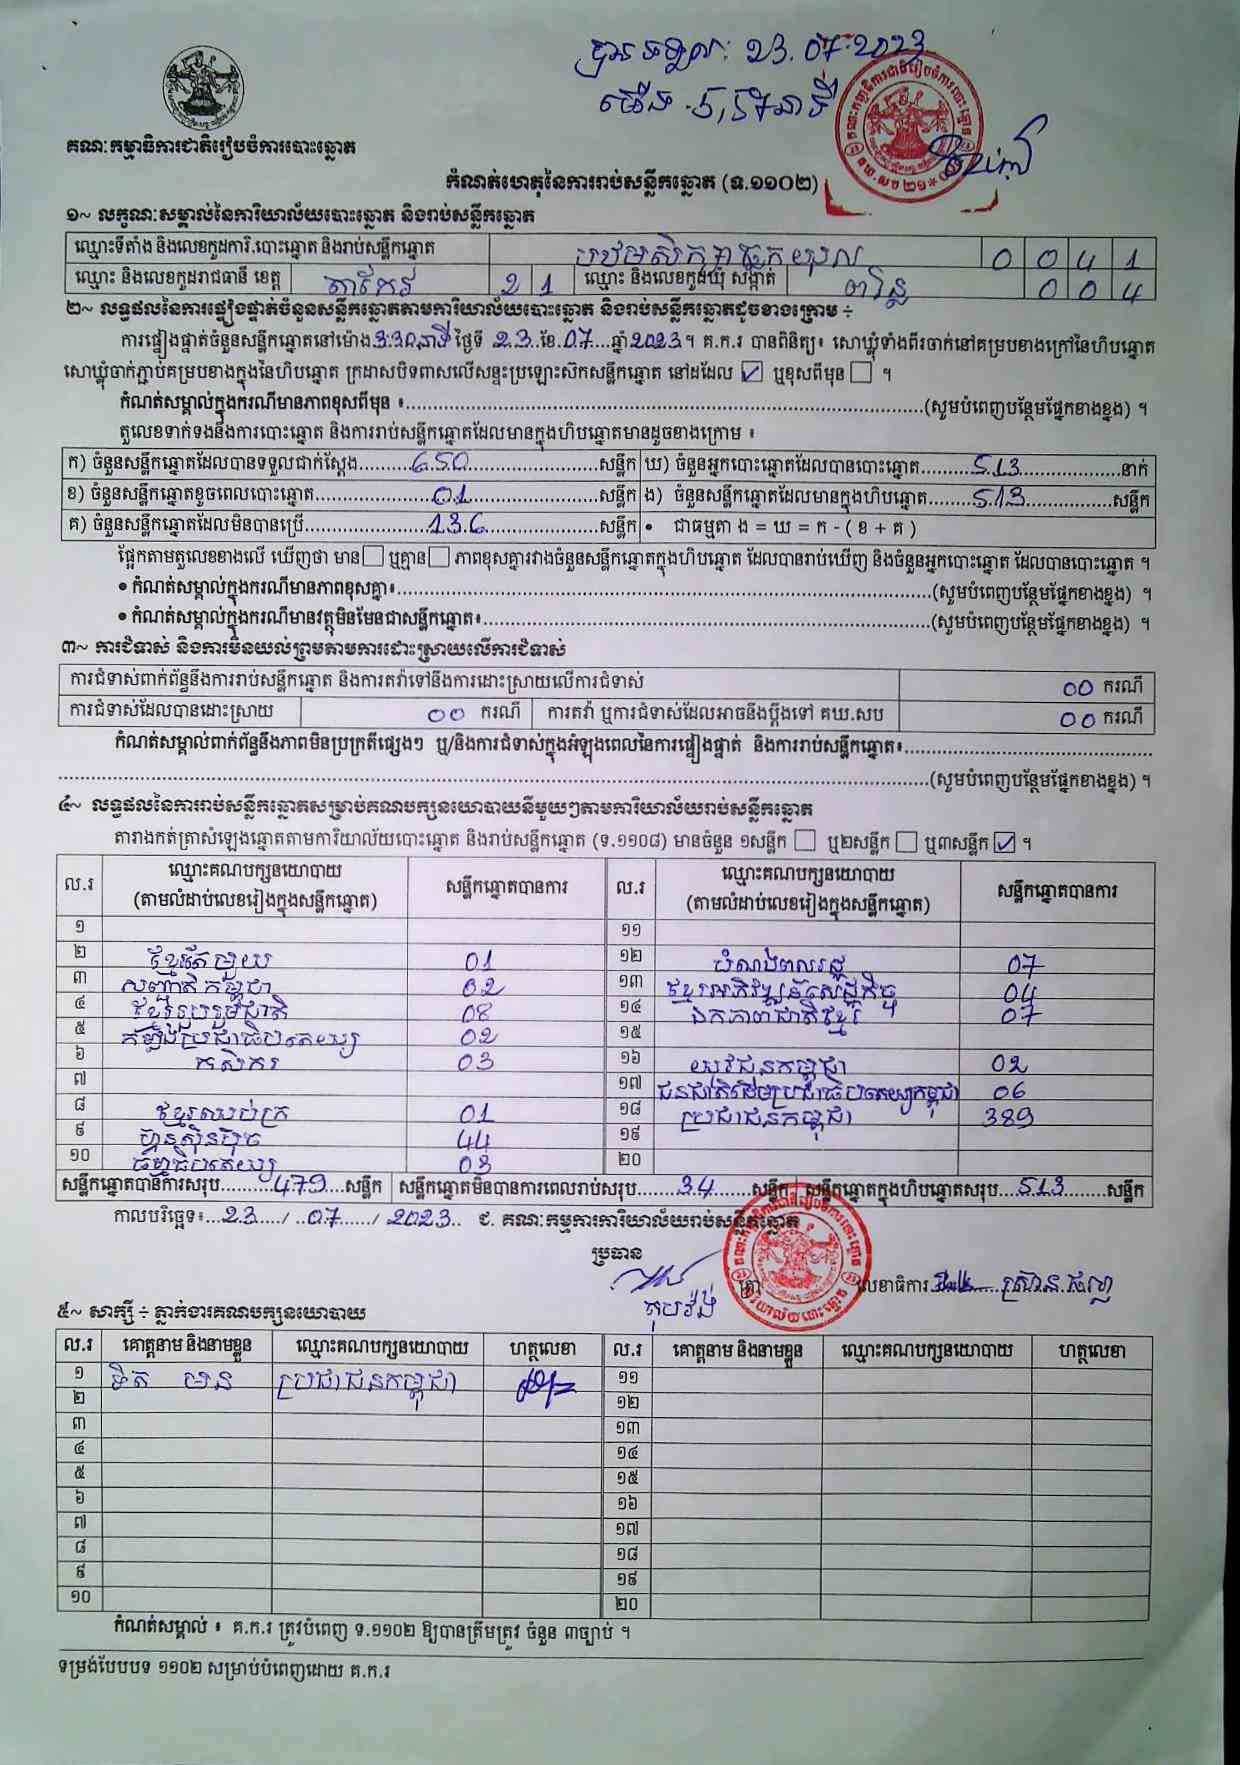 បានទទួល: 23.07.2023
ម៉ោង 5,57នាទី
គណៈកម្មាធិការជាតិរៀបចំការបោះឆ្នោត
កំណត់ហេតុនៃការរាប់សន្លឹកឆ្នោត (ទ.១១០២)
១~ លក្ខណៈសម្គាល់នៃការិយាល័យបោះឆ្នោត និងរាប់សន្លឹកឆ្នោត
ឈ្មោះទីតាំង និងលេខកូដការិ.បោះឆ្នោត និងរាប់សន្លឹកឆ្នោត 0 0 4 1
ឈ្មោះ និងលេខកូដរាជធានី ខេត្ត តាកែវ 2 1 ឈ្មោះ និងលេខកូដឃុំ សង្កាត់ 0 0 4
២~ លទ្ធផលនៃការផ្ទៀងផ្ទាត់ចំនួនសន្លឹកឆ្នោតតាមការិយាល័យបោះឆ្នោត និងរាប់សន្លឹកឆ្នោតដូចខាងក្រោម ÷
ការផ្ទៀងផ្ទាត់ចំនួនសន្លឹកឆ្នោតនៅម៉ោង 3:30 នាទី ថ្ងៃទី 23 ខែ 07 ឆ្នាំ 2023 ។ គ.ក.រ បានពិនិត្យ៖ សោឃ្លុំទាំងពីរចាក់នៅគម្របខាងក្រៅនៃហិបឆ្នោត
សោឃ្លុំចាក់ភ្ជាប់គម្របខាងក្នុងនៃហិបឆ្នោត ក្រដាសបិទពាសលើសន្ទះប្រឡោះស៊ីកសន្លឹកឆ្នោត នៅដដែល ☑ ឬខុសពីមុន ☐ ។
កំណត់សម្គាល់ក្នុងករណីមានភាពខុសពីមុន ៖ (សូមបំពេញបន្ថែមផ្នែកខាងខ្នង) ។
តួលេខទាក់ទងនឹងការបោះឆ្នោត និងការរាប់សន្លឹកឆ្នោតដែលមានក្នុងហិបឆ្នោតមានដូចខាងក្រោម ៖
ក) ចំនួនសន្លឹកឆ្នោតដែលបានទទួលជាក់ស្ដែង 650 សន្លឹក ឃ) ចំនួនអ្នកបោះឆ្នោតដែលបានបោះឆ្នោត 513 នាក់
ខ) ចំនួនសន្លឹកឆ្នោតខូចពេលបោះឆ្នោត 01 សន្លឹក ង) ចំនួនសន្លឹកឆ្នោតដែលមានក្នុងហិបឆ្នោត 513 សន្លឹក
គ) ចំនួនសន្លឹកឆ្នោតដែលមិនបានប្រើ 136 សន្លឹក • ជាធម្មតា ង = ឃ = ក - ( ខ + គ )
ផ្អែកតាមតួលេខខាងលើ ឃើញថា មាន ☐ ឬគ្មាន ☐ ភាពខុសគ្នារវាងចំនួនសន្លឹកឆ្នោតក្នុងហិបឆ្នោត ដែលបានរាប់ឃើញ និងចំនួនអ្នកបោះឆ្នោត ដែលបានបោះឆ្នោត ។
• កំណត់សម្គាល់ក្នុងករណីមានភាពខុសគ្នា៖ (សូមបំពេញបន្ថែមផ្នែកខាងខ្នង) ។
• កំណត់សម្គាល់ក្នុងករណីមានវត្ថុមិនមែនជាសន្លឹកឆ្នោត៖ (សូមបំពេញបន្ថែមផ្នែកខាងខ្នង) ។
៣~ ការជំទាស់ និងការមិនយល់ព្រមតាមការដោះស្រាយលើការជំទាស់
ការជំទាស់ពាក់ព័ន្ធនឹងការរាប់សន្លឹកឆ្នោត និងការតវ៉ាទៅនឹងការដោះស្រាយលើការជំទាស់ 00 ករណី
ការជំទាស់ដែលបានដោះស្រាយ 00 ករណី ការតវ៉ា ឬការជំទាស់ដែលអាចនឹងប្ដឹងទៅ គឃ.សប 00 ករណី
កំណត់សម្គាល់ពាក់ព័ន្ធនឹងភាពមិនប្រក្រតីផ្សេងៗ ឬ/និងការជំទាស់ក្នុងអំឡុងពេលនៃការផ្ទៀងផ្ទាត់ និងការរាប់សន្លឹកឆ្នោត៖
(សូមបំពេញបន្ថែមផ្នែកខាងខ្នង) ។
៤~ លទ្ធផលនៃការរាប់សន្លឹកឆ្នោតសម្រាប់គណបក្សនយោបាយនីមួយៗតាមការិយាល័យរាប់សន្លឹកឆ្នោត
តារាងកត់ត្រាសំឡេងឆ្នោតតាមការិយាល័យបោះឆ្នោត និងរាប់សន្លឹកឆ្នោត (ទ.១១០៨) មានចំនួន ១សន្លឹក ☐ ឬ២សន្លឹក ☐ ឬ៣សន្លឹក ☑ ។
ល.រ ឈ្មោះគណបក្សនយោបាយ (តាមលំដាប់លេខរៀងក្នុងសន្លឹកឆ្នោត) សន្លឹកឆ្នោតបានការ ល.រ ឈ្មោះគណបក្សនយោបាយ (តាមលំដាប់លេខរៀងក្នុងសន្លឹកឆ្នោត) សន្លឹកឆ្នោតបានការ
១ ១១
២ ខ្មែរតែមួយ 01 ១២ បំណងពលរដ្ឋ 07
៣ សញ្ជាតិកម្ពុជា 02 ១៣ ខ្មែរអភិវឌ្ឍន៍សេដ្ឋកិច្ច 04
៤ ខ្មែររួបរួមជាតិ 08 ១៤ ឯកភាពជាតិខ្មែរ 07
៥ កម្លាំងប្រជាធិបតេយ្យ 02 ១៥
៦ កសិករ 03 ១៦ យុវជនកម្ពុជា 02
៧ ១៧ ជនជាតិដើមប្រជាធិបតេយ្យកម្ពុជា 06
៨ ខ្មែរឈប់ក្រ 01 ១៨ ប្រជាជនកម្ពុជា 389
៩ ហ្វ៊ុនស៊ិនប៉ិច 44 ១៩
១០ ធម្មាធិបតេយ្យ 03 ២០
សន្លឹកឆ្នោតបានការសរុប 479 សន្លឹក សន្លឹកឆ្នោតមិនបានការពេលរាប់សរុប 34 សន្លឹក សន្លឹកឆ្នោតក្នុងហិបឆ្នោតសរុប 513 សន្លឹក
កាលបរិច្ឆេទ៖ 23 / 07 / 2023 ជ. គណៈកម្មការការិយាល័យរាប់សន្លឹកឆ្នោត
ប្រធាន
ត្រា លេខាធិការ
៥~ សាក្សី ÷ ភ្នាក់ងារគណបក្សនយោបាយ
ល.រ គោត្តនាម និងនាមខ្លួន ឈ្មោះគណបក្សនយោបាយ ហត្ថលេខា ល.រ គោត្តនាម និងនាមខ្លួន ឈ្មោះគណបក្សនយោបាយ ហត្ថលេខា
១ ទិត មាន ប្រជាជនកម្ពុជា ១១
២ ១២
៣ ១៣
៤ ១៤
៥ ១៥
៦ ១៦
៧ ១៧
៨ ១៨
៩ ១៩
១០ ២០
កំណត់សម្គាល់ ៖ គ.ក.រ ត្រូវបំពេញ ទ.១១០២ ឱ្យបានត្រឹមត្រូវ ចំនួន ៣ច្បាប់ ។
ទម្រង់បែបបទ ១១០២ សម្រាប់បំពេញដោយ គ.ក.រ